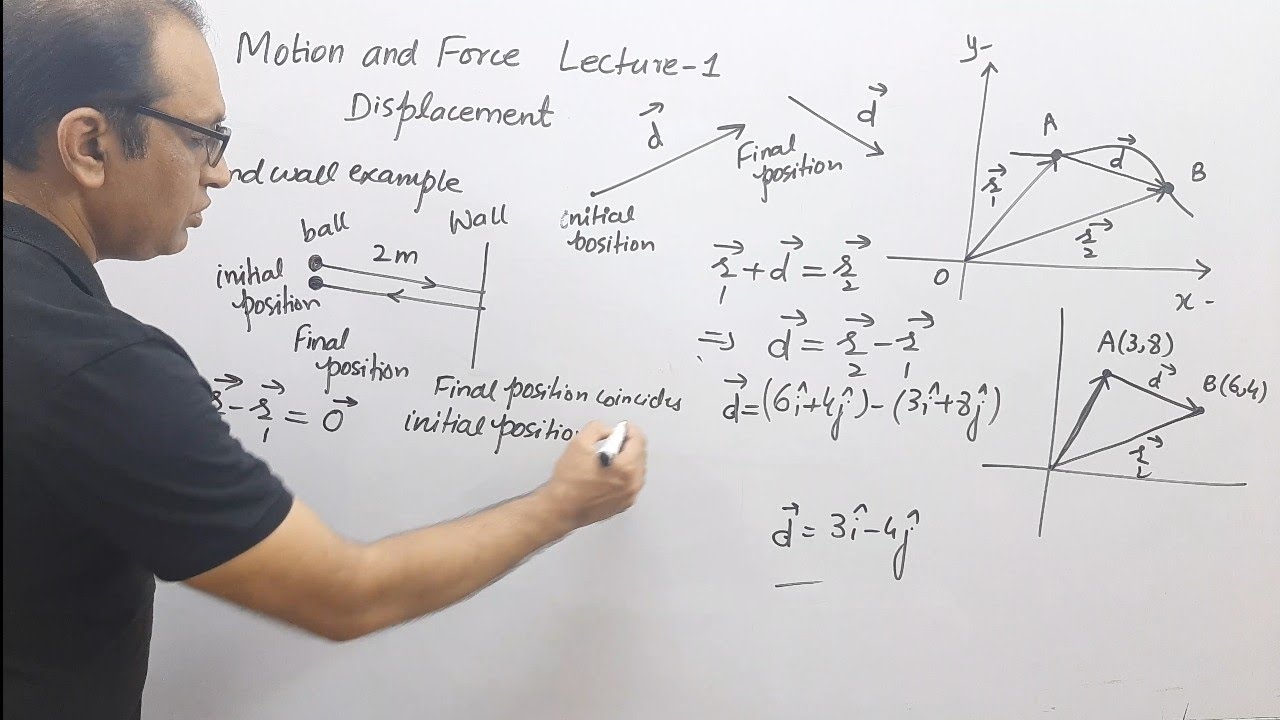 Motion and Force Lecture-1
Displacement
nd wall example
ball
Wall
2m
initial
position
Final
position
r⃗ - r⃗₁ = 0⃗
Final position coincides
initial positio
d⃗
initial
position
Final
position
d⃗
r⃗₁ + d⃗ = r⃗₂
⇒ d⃗ = r⃗₂ - r⃗₁
d⃗ = (6î+4ĵ) - (3î+8ĵ)
d⃗ = 3î-4ĵ
y-
A
d⃗
B
r⃗₁
r⃗₂
O
x -
A(3,8)
d⃗
B(6,4)